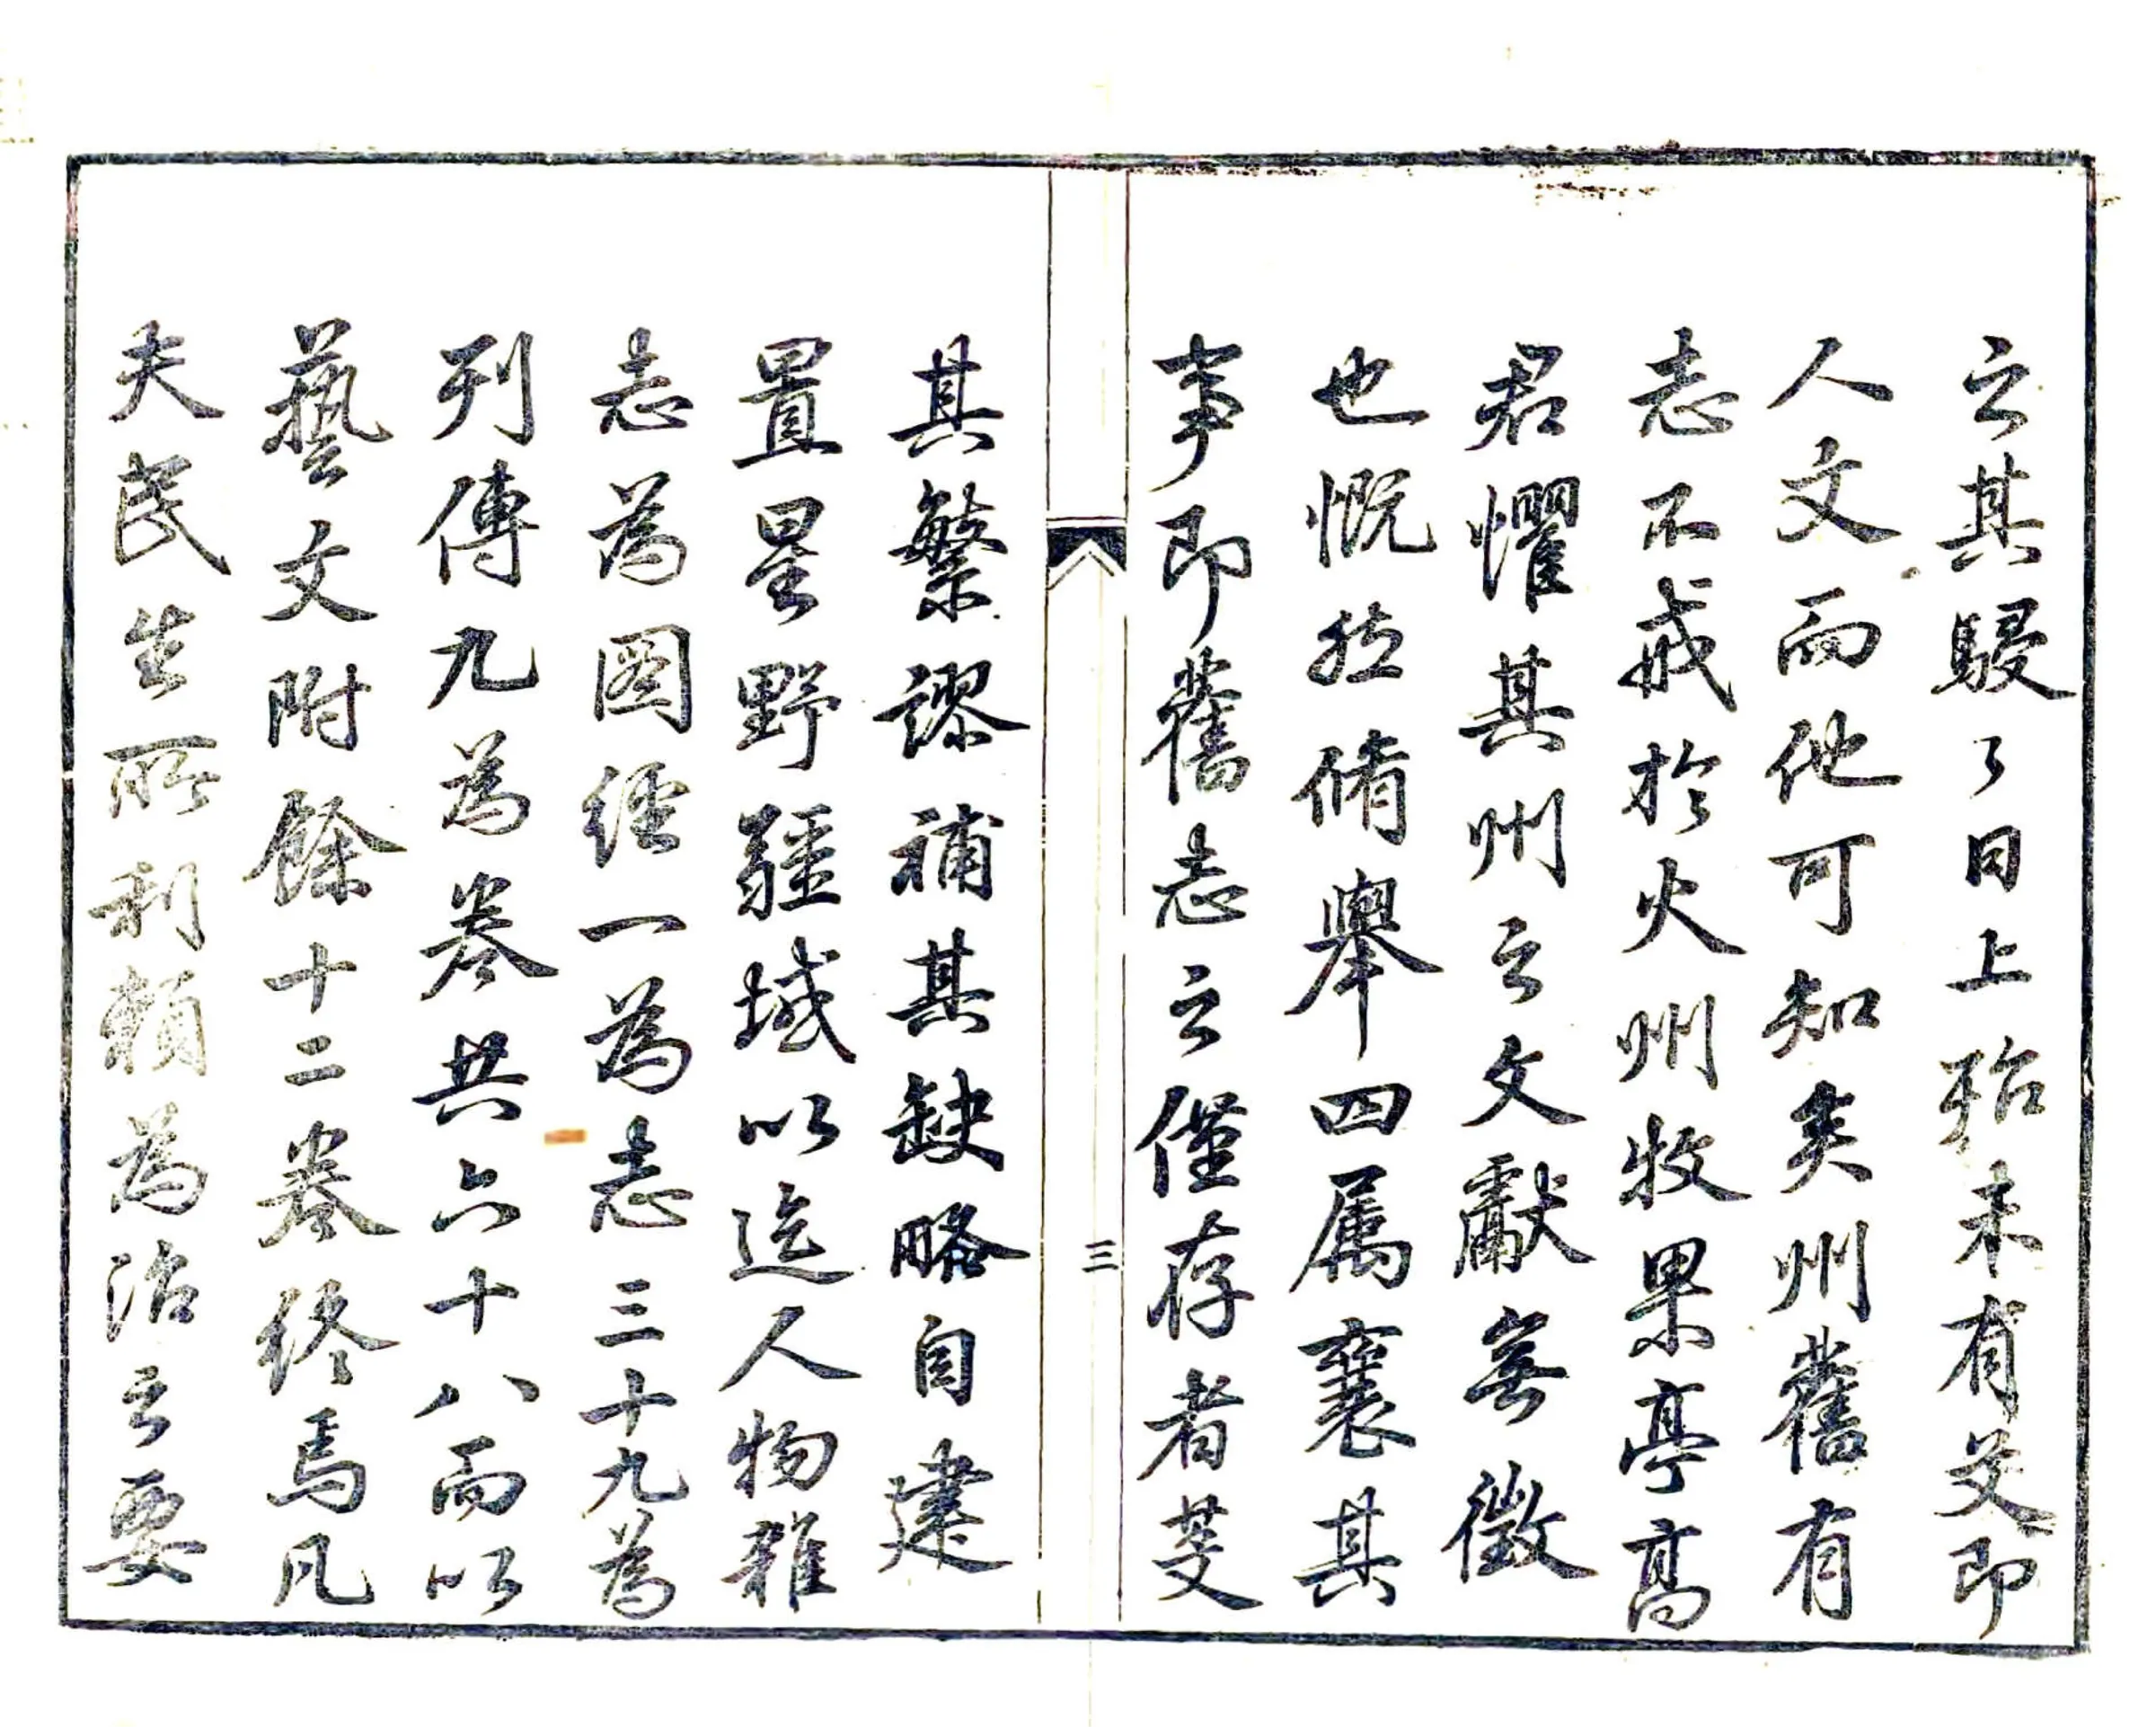 之其駸々日上殆未有艾即
人文而他可知矣州舊有
志不戒於火州牧果亭高
君懼其州之文獻無徵
也慨然脩舉四属襄其
事即舊志之僅存者芟
三
其繁謬補其缺略自建
置星野疆域以迄人物雜
志為圖經一為志三十九為
列傳九為卷共六十八而以
藝文附餘十二卷終焉凡
夫民生所利賴為治之要